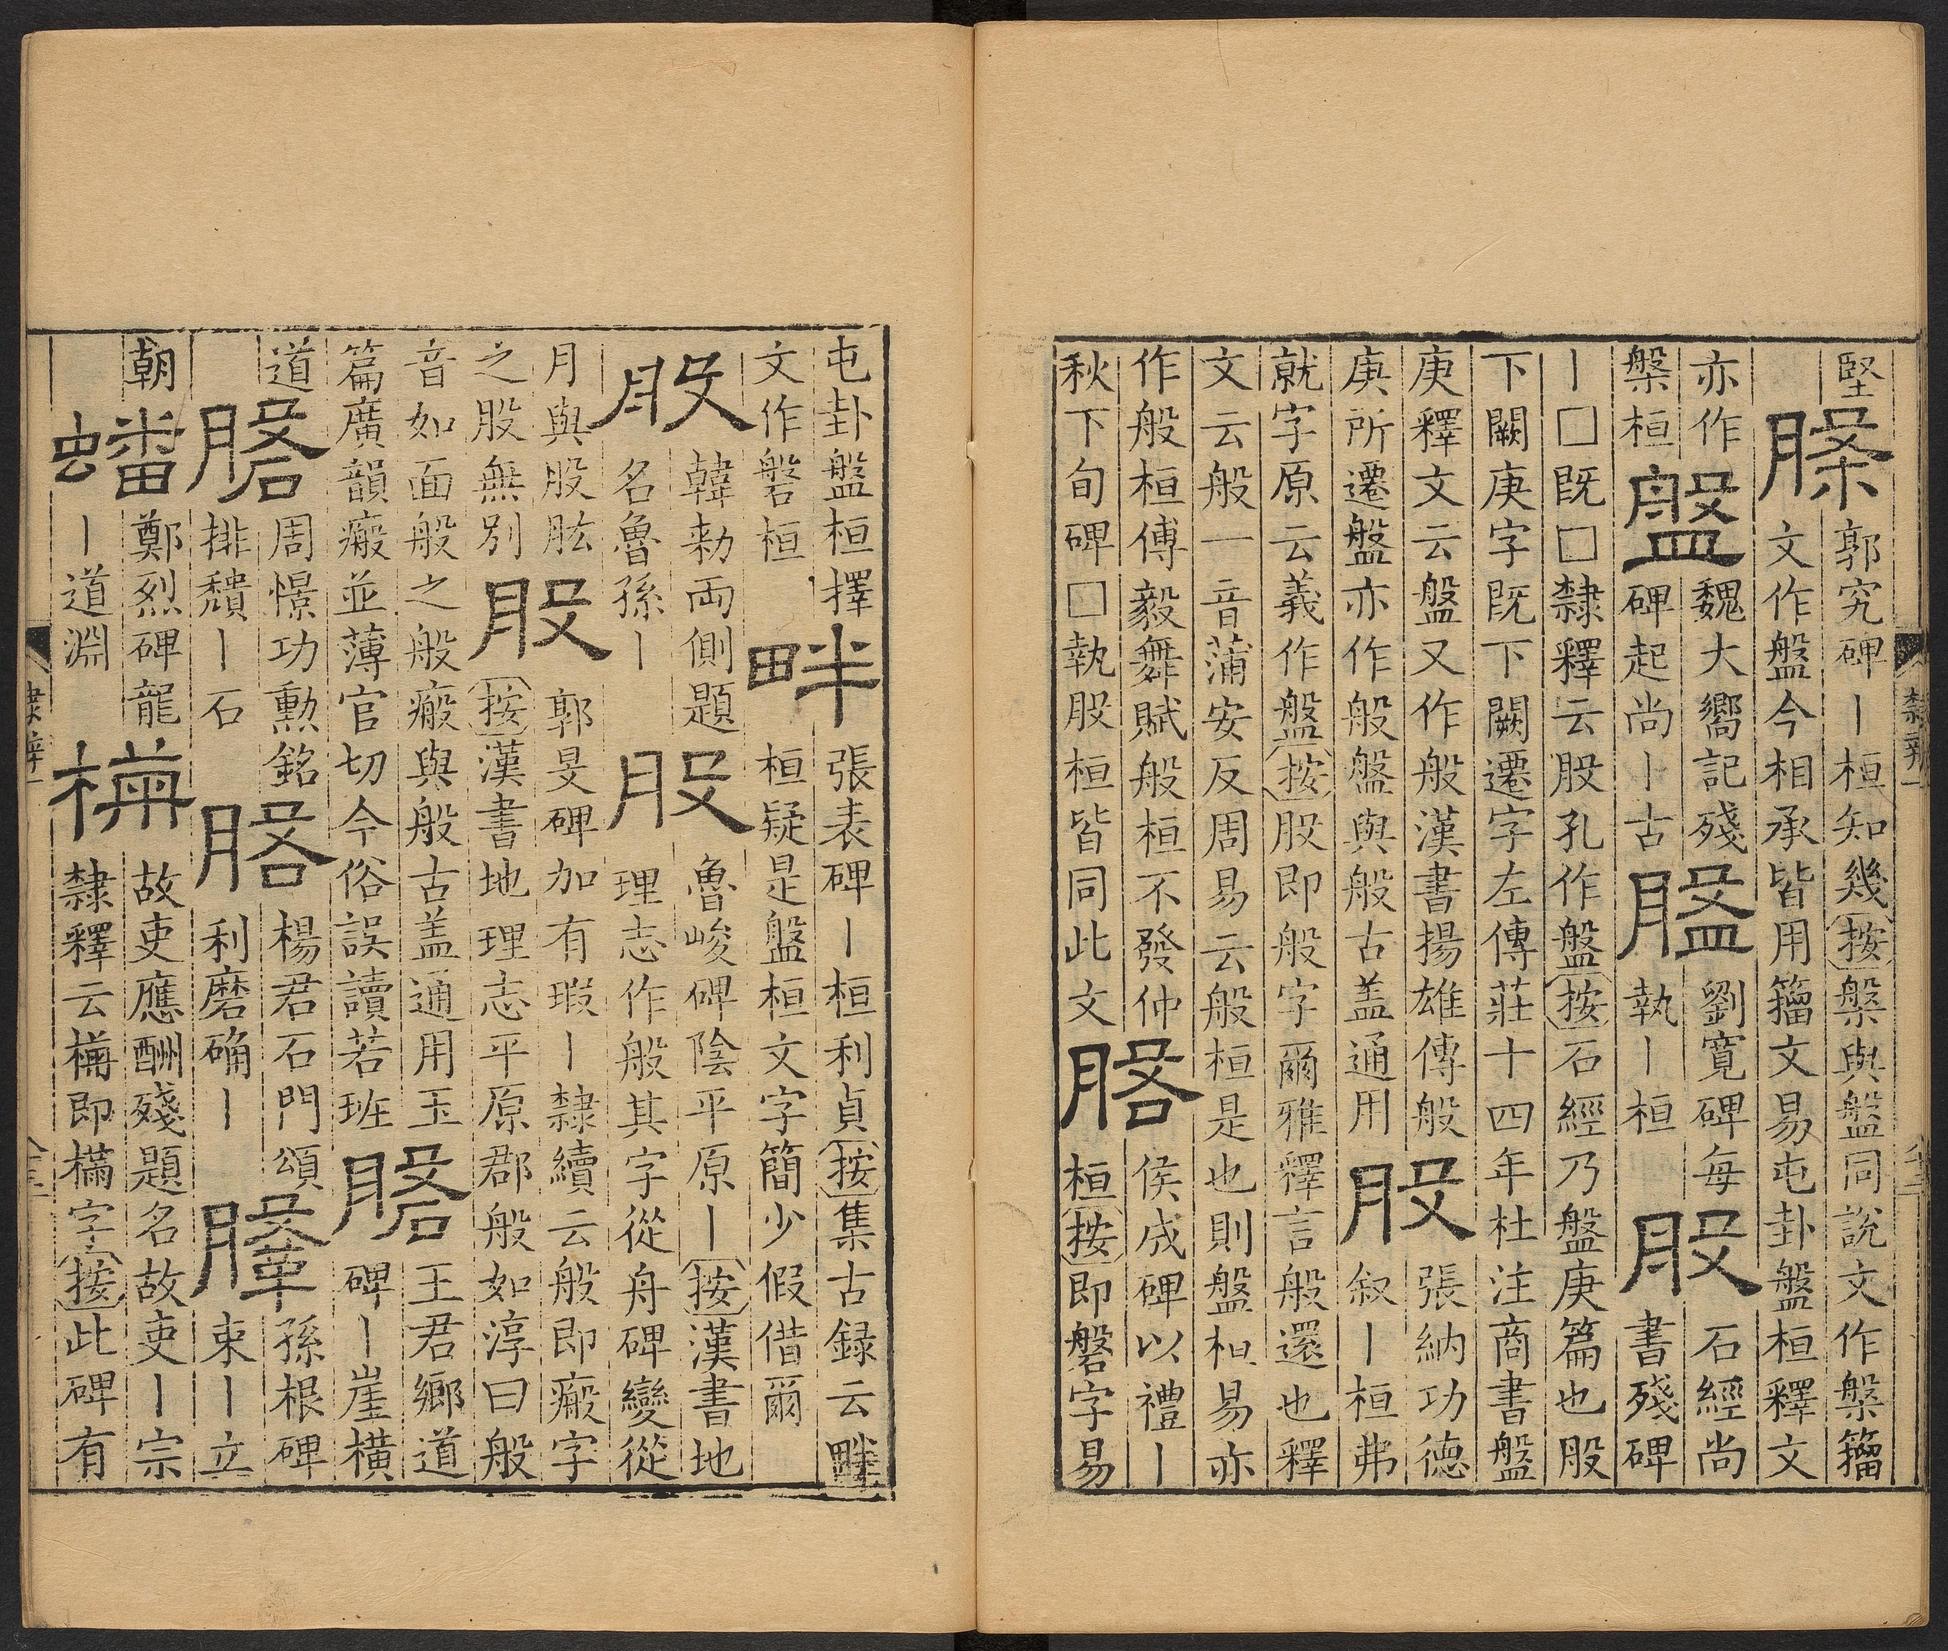 堅槃郭究碑丨桓知幾按槃與盤同說文作槃籀
文作盤今相承皆用籀文易屯卦盤桓釋文
亦作盤魏大嚮記殘盤劉寬碑每股石經尚
槃桓碑起尚丨古執丨桓書殘碑
丨□既□隸釋云股孔作盤按石經乃盤庚篇也股
下闕庚字既下下闕遷字左傳莊十四年杜注商書盤
庚釋文云盤又作般漢書揚雄傳般股張納功德
庚所遷盤亦作般盤與般古盖通用叙丨桓弗
就字原云義作盤按股即般字爾雅釋言般還也釋
文云般一音蒲安反周易云般桓是也則盤桓易亦
作般桓傅毅舞賦般桓不發仲磐侯成碑以禮丨
秋下旬碑□執股桓皆同此文桓按即磐字易
屯卦盤桓擇畔張表碑丨桓利貞按集古録云畔
文作磐桓桓疑是盤桓文字簡少假借爾
股韓勑両側題股魯峻碑陰平原丨按漢書地
名魯孫丨理志作般其字從舟碑變從
月與股肱股郭旻碑加有瑕丨隸續云般即瘢字
之股無別按漢書地理志平原郡般如淳曰般
音如面般之般瘢與般古盖通用玉磐王君鄉道
篇廣韻瘢並薄官切今俗誤讀若班碑丨崖橫
道磐周憬功勲銘磐楊君石門頌鞶孫根碑
排穨丨石利磨确丨束丨立
朝蟠鄭烈碑龍樠故吏應酬殘題名故吏丨宗
丨道淵隸釋云樠即樠字按此碑有